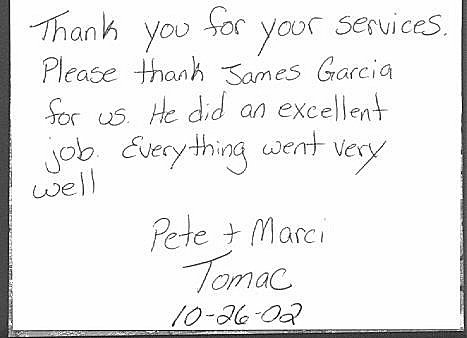 Thank you for your services.
Please thank James Garcia
for us. He did an excellent
job. Everything went very
well
Pete + Marci
Tomac
10-26-02